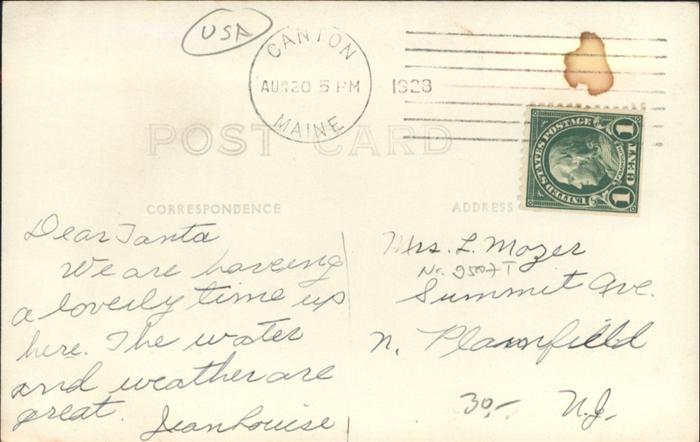 USA
CANTON
AUG 20 5 PM 1928
MAINE
POST CARD
CORRESPONDENCE
ADDRESS
UNITED STATES POSTAGE
1 CENT 1
Dear Tanta
We are having
a loverly time up
here. The water
and weather are
great. Jean Louise
Mrs. L. Mozer
Summit Ave.
N. Plainfield
30,- N.J.